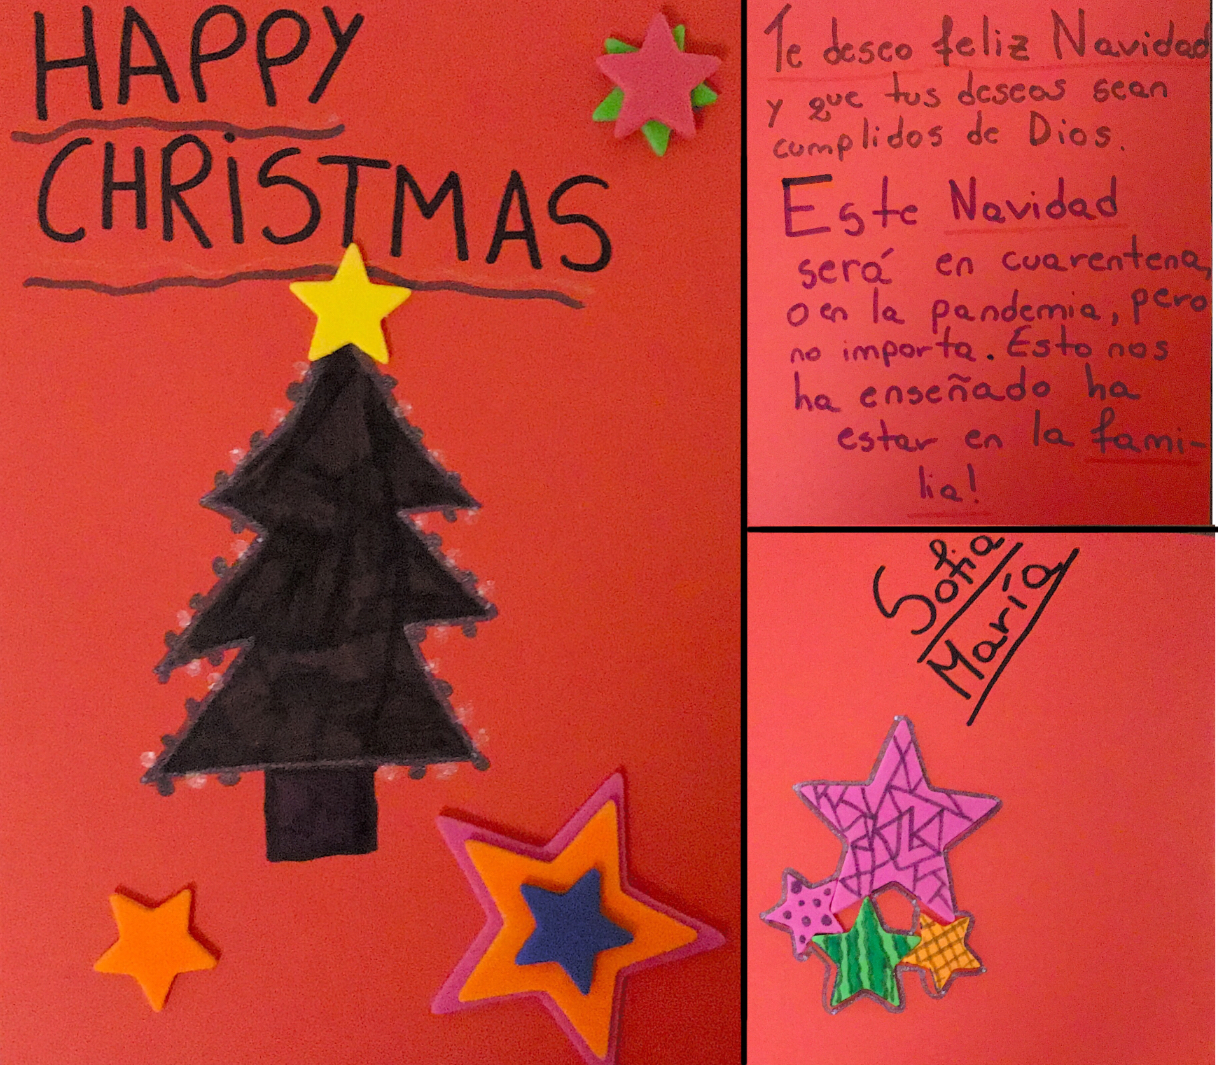 HAPPY
CHRiSTMAS
Te deseo feliz Navidad
y que tus deseos sean
cumplidos de Dios.
Este Navidad
será en cuarentena,
o en la pandemia, pero
no importa. Esto nos
ha enseñado ha
estar en la fami-
lia!
Sofia
María